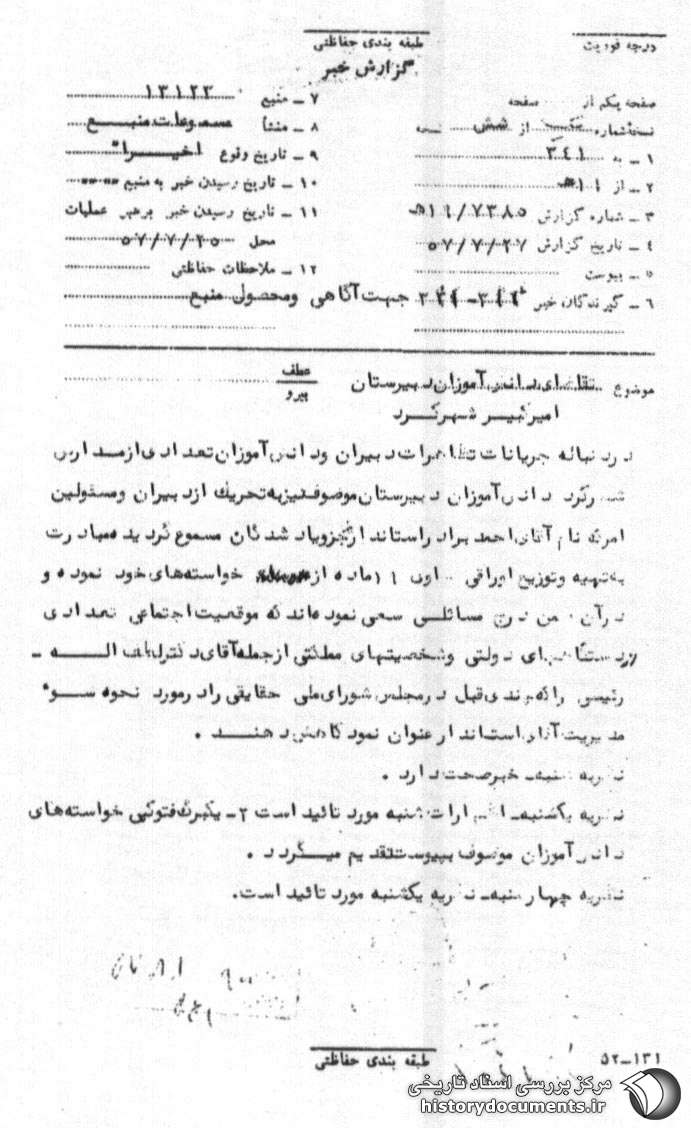 طبقه بندی حفاظتی
درجه فوریت
گزارش خبر
صفحه یکم از صفحه
نسخه شماره یک از شش نسخه
۱ – به ۳۴۱
۲ – از ۱۱ ه
۳ – شماره گزارش ۱۱/۷۳۸۵ ه
۴ – تاریخ گزارش ۵۷/۷/۲۷
۵ – پیوست
۶ – گیرندگان خبر جهت آگاهی ومحصول منبع
۷ – منبع ۱۳۱۲۳
۸ – منشأ مسموعات منبع
۹ – تاریخ وقوع اخیرا"
۱۰ – تاریخ رسیدن خبر به منبع
۱۱ – تاریخ رسیدن خبر برهبر عملیات
محل ۵۷/۷/۲۵
۱۲ – ملاحظات حفاظتی
موضوع تقاضای دانش آموزان دبیرستان
عطف
پیرو
امیرکبیر شهرکرد
دردنباله جریانات تظاهرات دبیران ودانش آموزان تعدادی ازمدارس
شهرکرد دانش آموزان دبیرستان موصوف نیز به تحریک ازدبیران ومسئولین
امر که نام آقای احمد براد راستاندار نجزو یاد شدگان مسموع گردیده مبادرت
به تهیه وتوزیع اوراقی ۱۱ ماده از خواسته های خود نموده و
درآن ضمن درج مسائلی سعی نموده اند که موقعیت اجتماعی تعدادی
ازدستگاههای دولتی وشخصیتهای مملکتی ازجمله آقای دکترلطف الـــه –
رئیسی راکه چندی قبل درمجلس شورای ملی حقایقی رادرمورد نحوه سوء
مدیریت آقای استاندار عنوان نمود کاهش دهنـــد .
نظریه شنبه – خبرصحت دارد .
نظریه یکشنبه – اظهارات شنبه مورد تائید است ۲ – یکبرگ فتوکپی خواسته های
دانش آموزان موصوف بپیوست تقدیم میگردد .
نظریه چهارشنبه – نظریه یکشنبه مورد تائید است.
طبقه بندی حفاظتی
۵۲–۱۳۱
مرکز بررسی اسناد تاریخی
historydocuments.ir